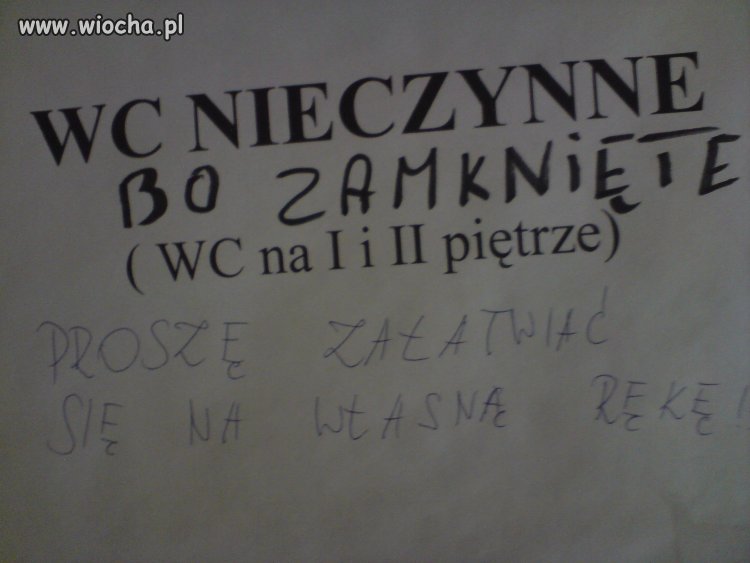 www.wiocha.pl
WC NIECZYNNE
BO ZAMKNIĘTE
( WC na I i II piętrze)
PROSZĘ ZAŁATWIAĆ
SIĘ NA WŁASNĄ RĘKĘ!